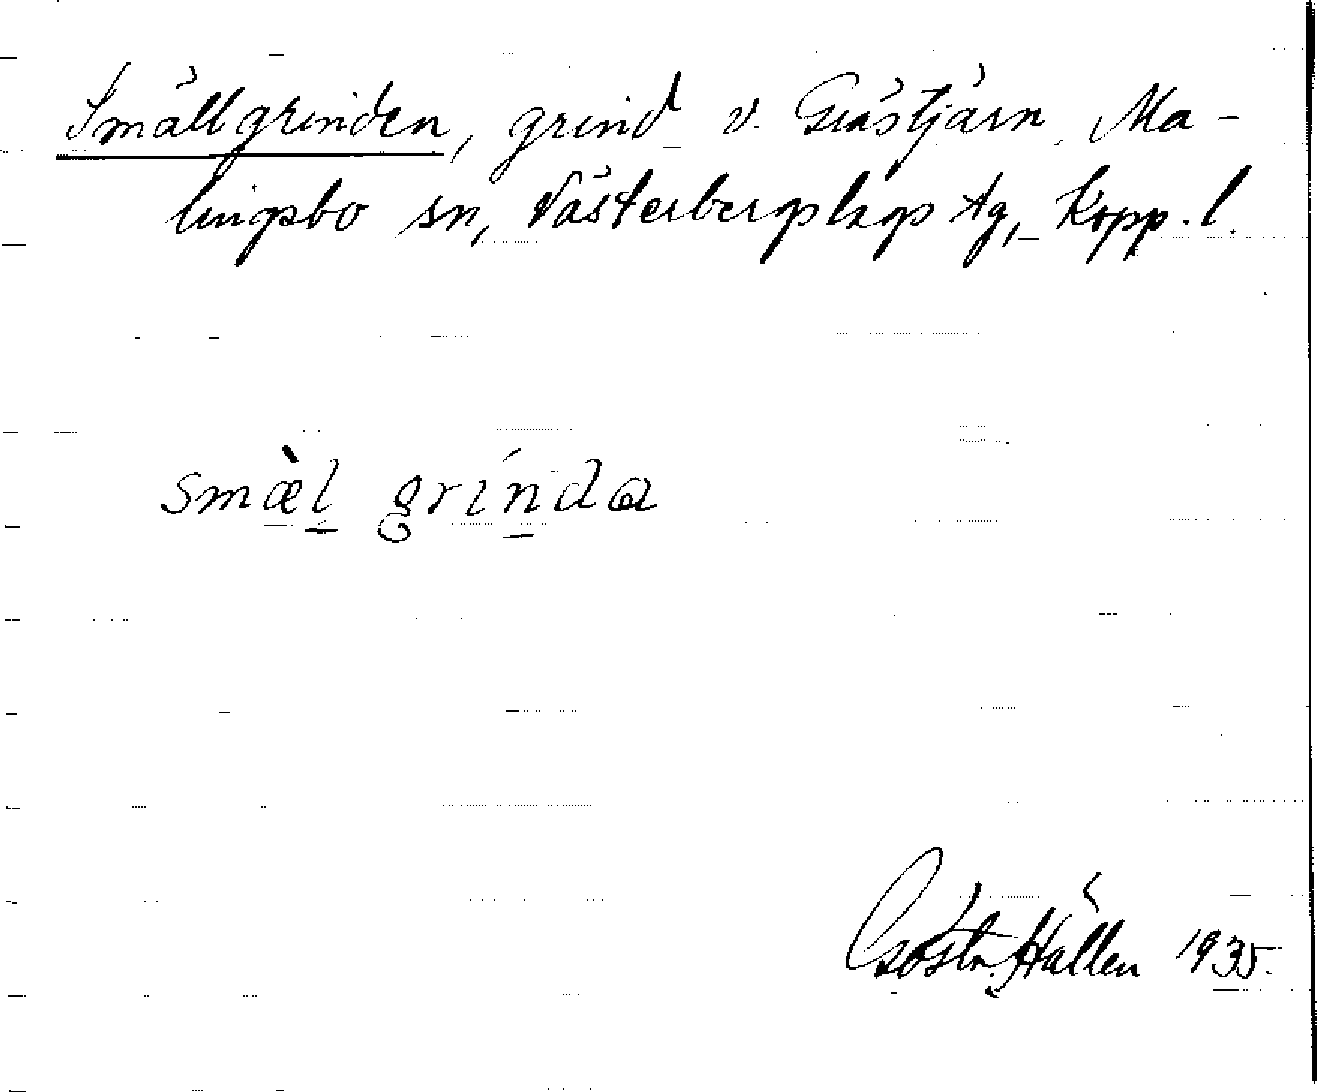 Smällgrinden, grind v. Gråstjärn, Ma-
lingsbo sn, Västerbergslags tg, Kopp. l.
smæ̀l grínda
Gösta Hallén 1935.